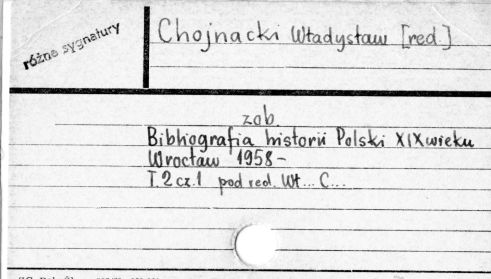 różne sygnatury
Chojnacki Władysław [red.]
zob.
Bibliografia historii Polski XIX wieku
Wrocław 1958-
T.2 cz.1 pod red. Wł... C...